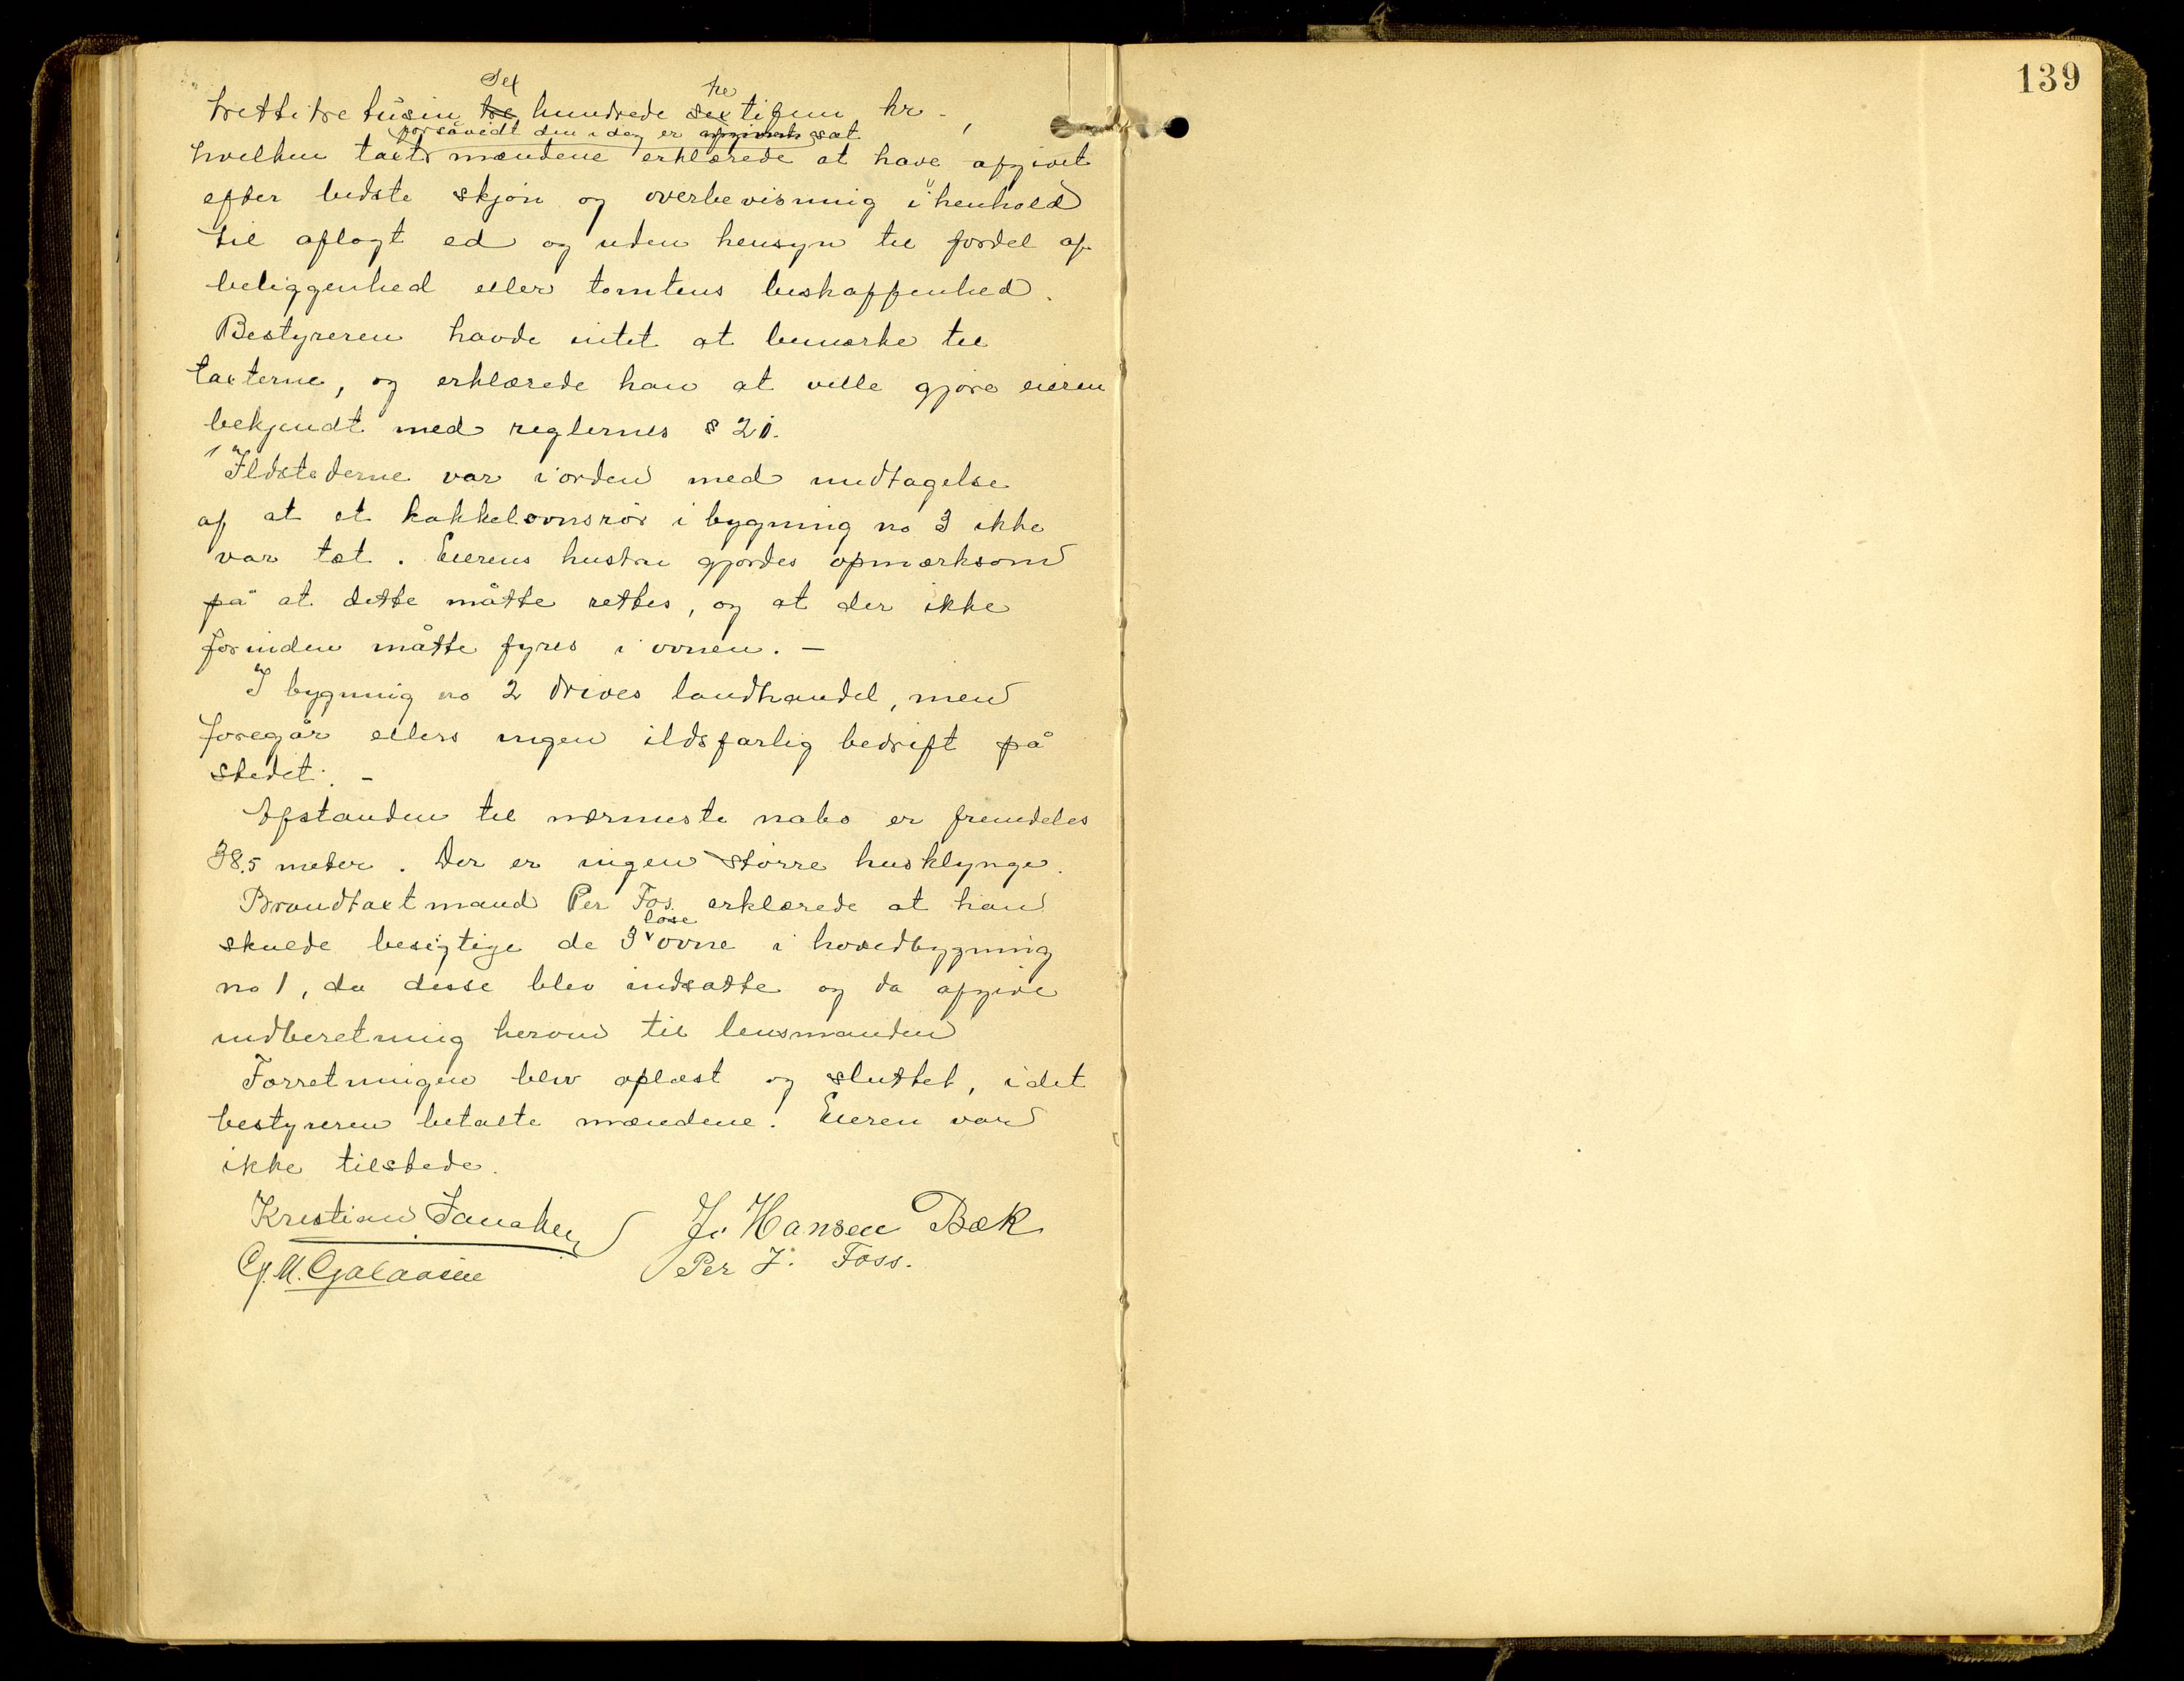 139
Sex tre
trettitre tusin tre hundrede sextifem kr. ,
forsåvidt den i dag er afgivet sat
hvilken taxt mændene erklærede at have afgivet
efter bedste skjøn og overbevisning i henhold
til aflagt ed og uden hensyn til fordel af
beliggenhed eller tomtens beskaffenhed.
Bestyreren havde intet at bemærke til
taxterne, og erklærede han at ville gjøre eieren
bekjendt med reglernes § 21.
Ildstederne var i orden med undtagelse
af at et kakkelovnsrør i bygning no 3 ikke
var tæt. Eierens hustru gjordes opmærksom
på at dette måtte rettes, og at der ikke
forinden måtte fyres i ovnen. —
I bygning no 2 drives landhandel, men
foregår ellers ingen ildsfarlig bedrift på
stedet. —
Afstanden til nærmeste nabo er fremdeles
38.5 meter. Der er ingen større husklynge.
Brandtaxtmand Per Fos. erklærede at han
løse
skulde besigtige de 3 ovne i hovedbygning
no 1, da disse blev indsatte og da afgive
indberetning herom til lensmanden
Forretningen blev oplæst og sluttet, idet
bestyreren betalte mændene. Eieren var
ikke tilstede.
Kristian Hansen Bæk
Per J. Foss.